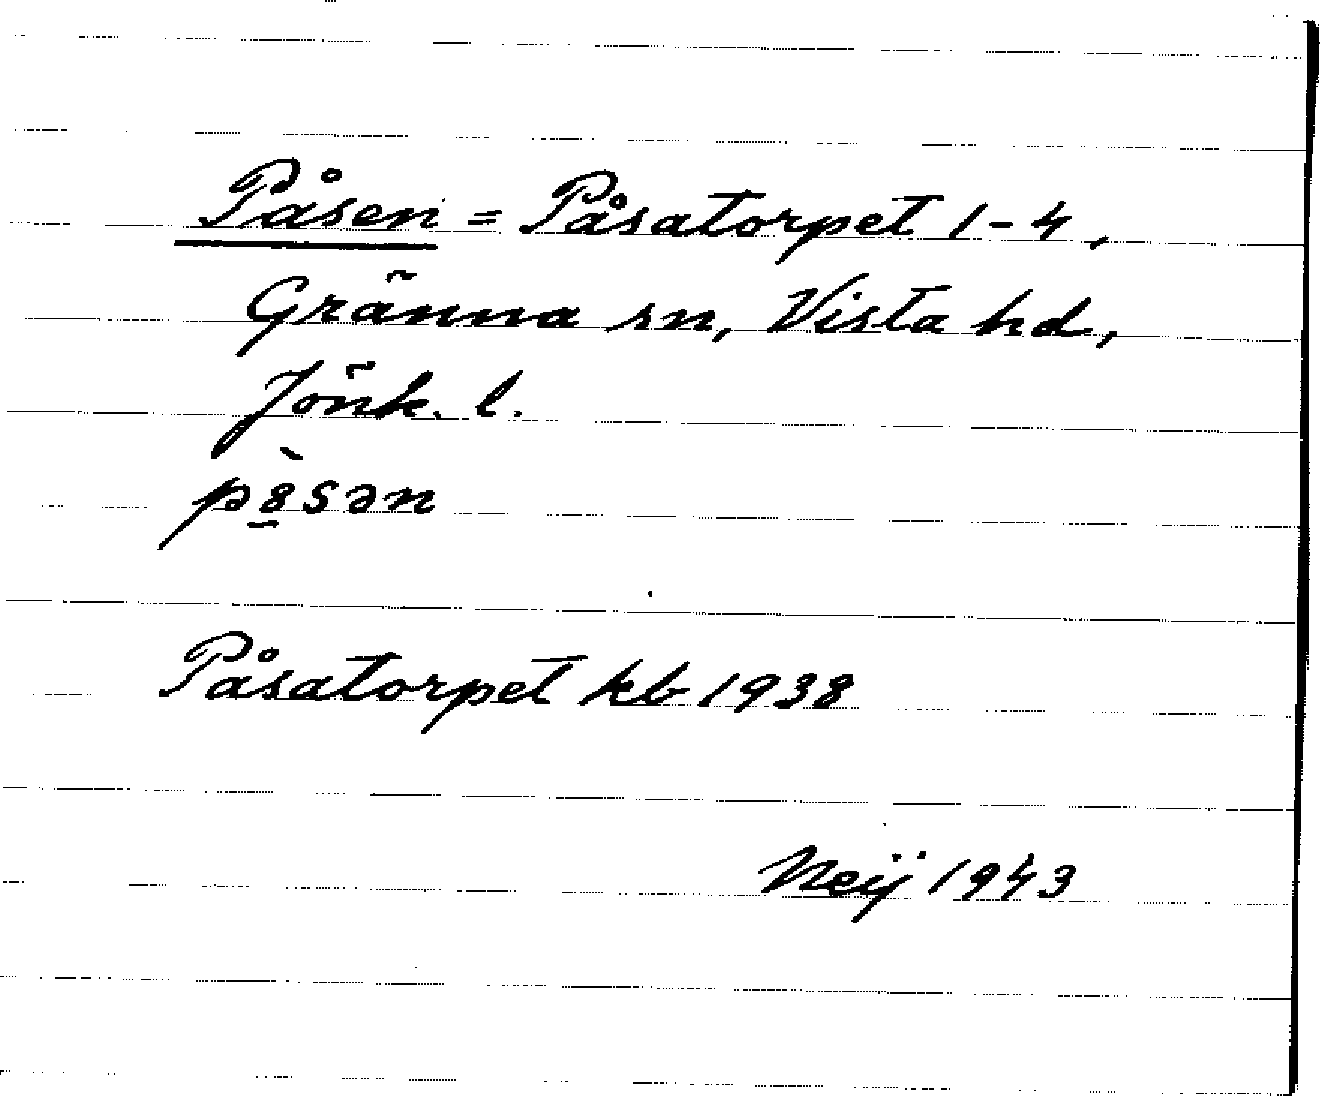 Påsen = Påsatorpet 1-4,
Gränna sn, Vista hd,
Jönk. l.
p8̲̀sən
Påsatorpet kb 1938
Neij 1943